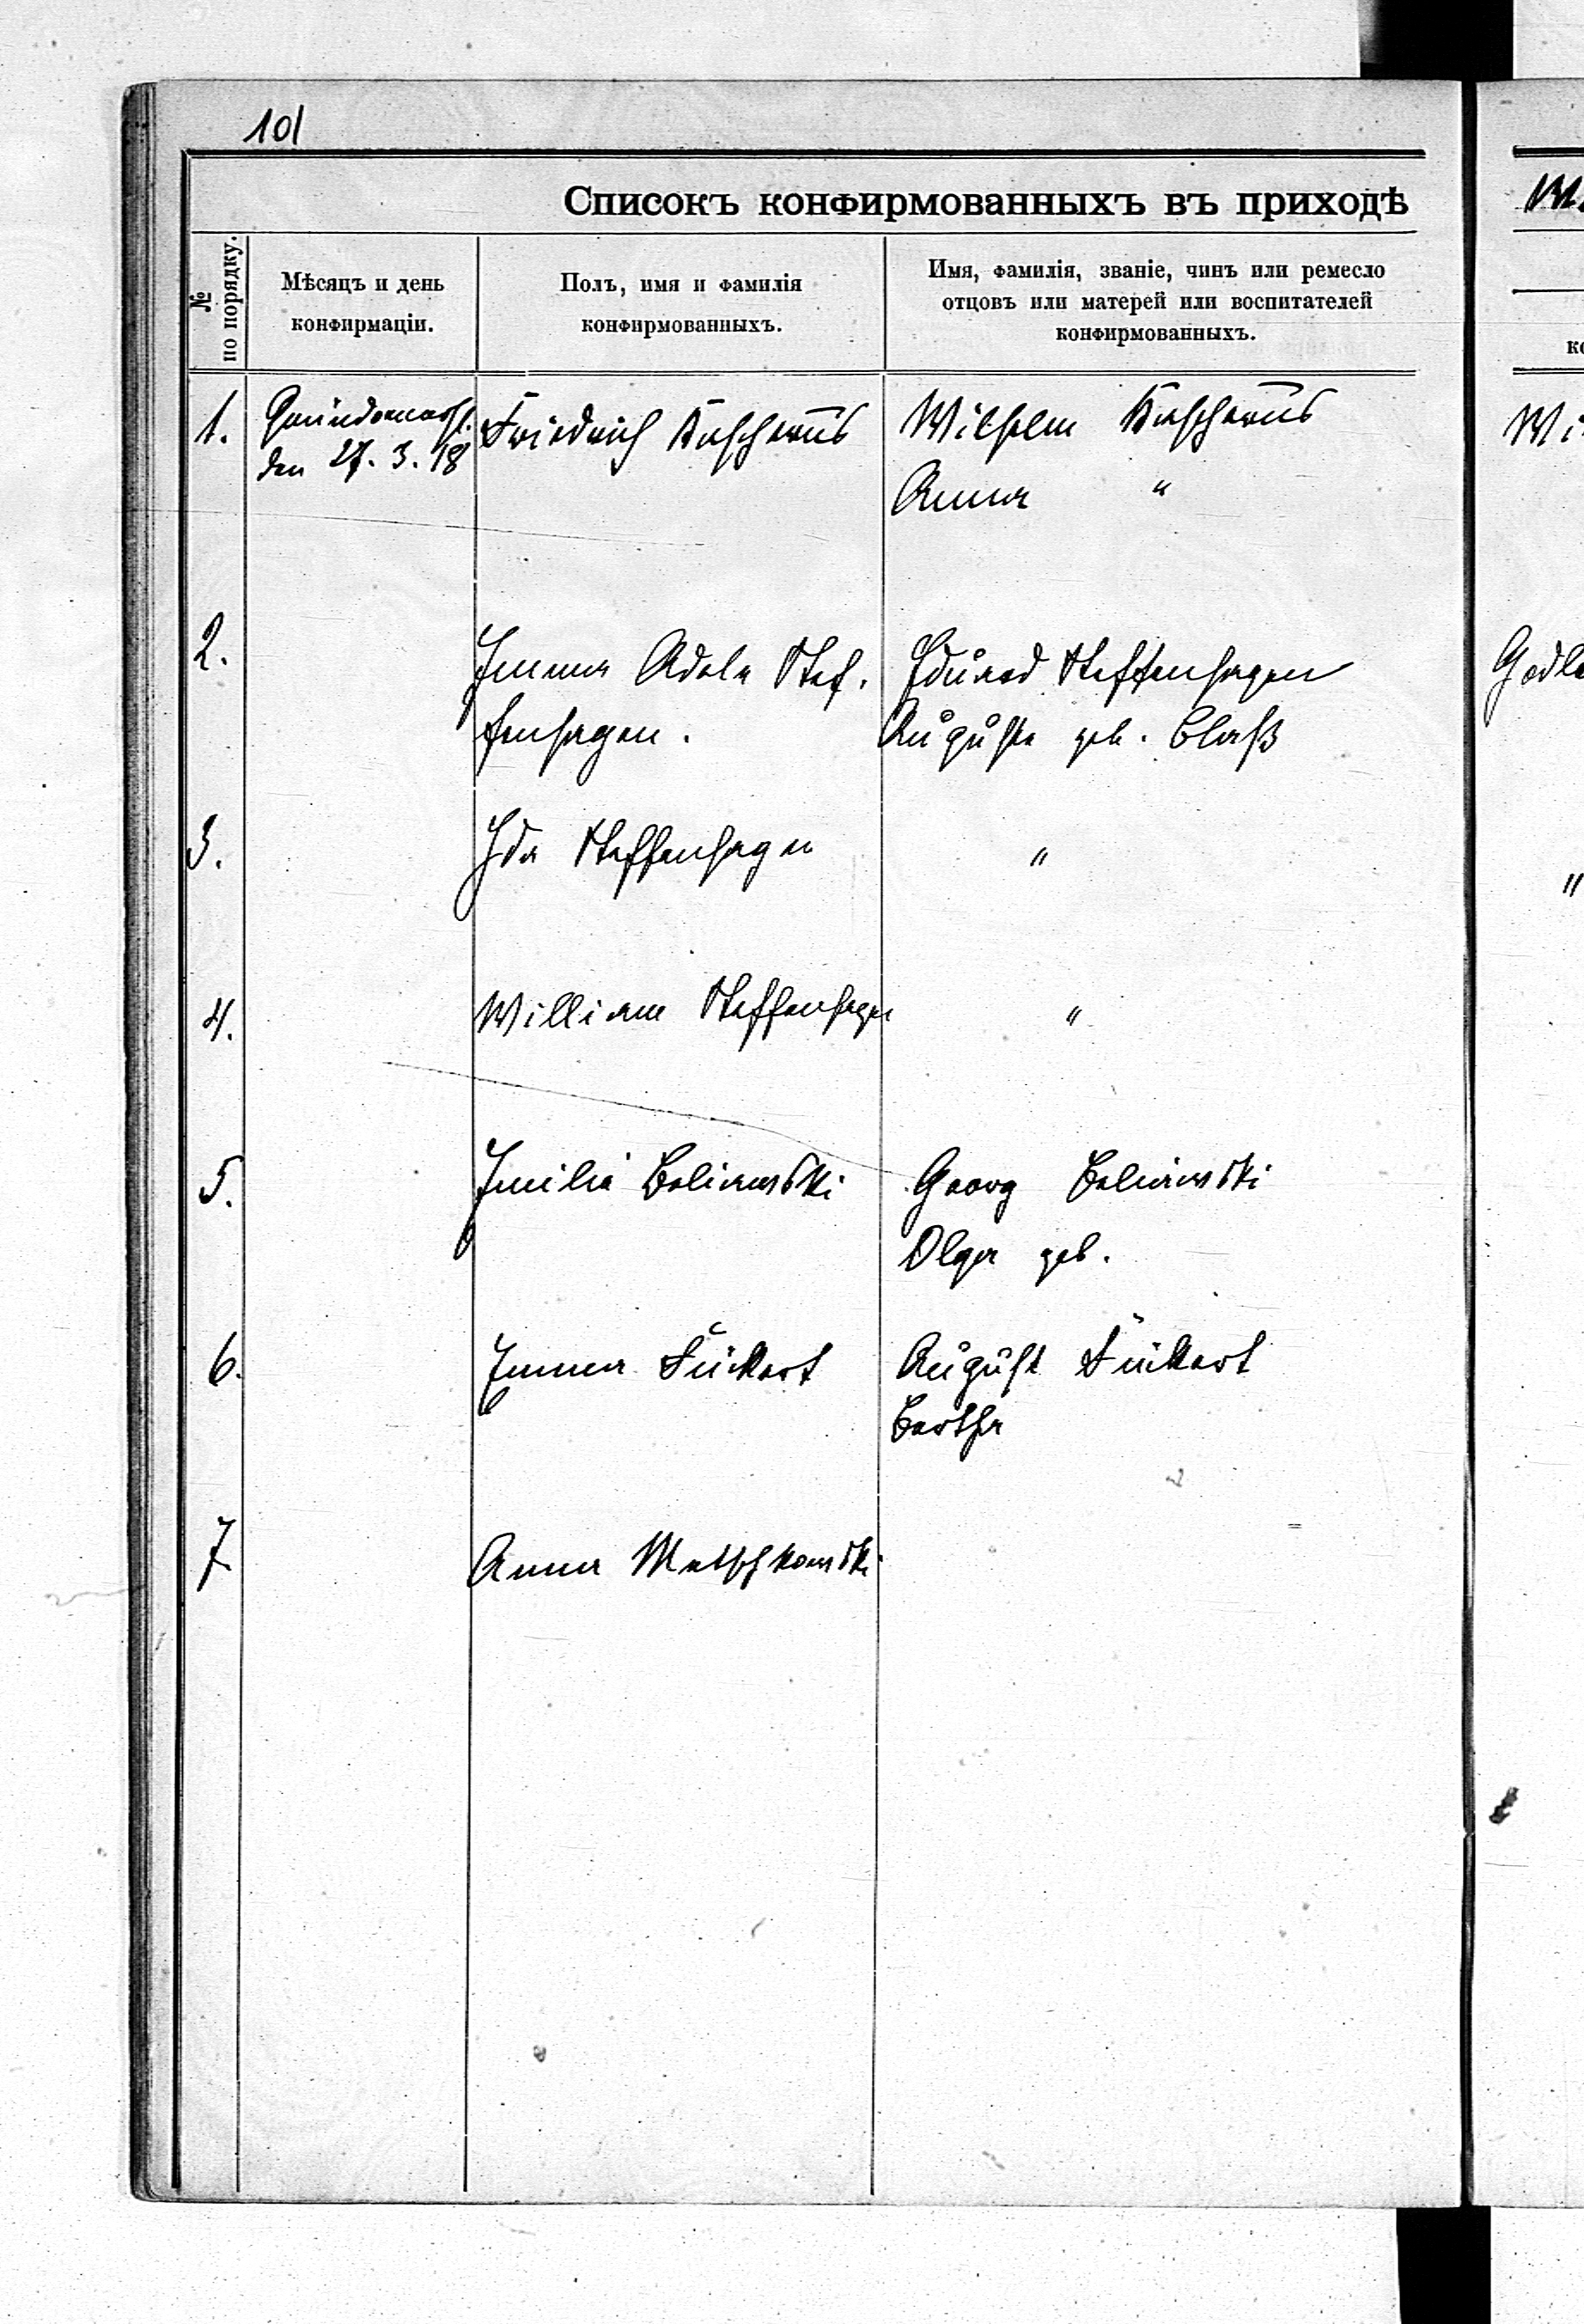 101
Списокъ конфирмованныхъ въ приходѣ
№ по порядку.
Мѣсяцъ и день
конфирмаціи.
Полъ, имя и фамилія
конфирмованныхъ.
Имя, фамилія, званіе, чинъ или ремесло
отцовъ или матерей или воспитателей
конфирмованныхъ.
1.
den 27. 3. 18
Friedrich
Wilhelm
Anna "
2.
Emma Adele Stef.
fenhagen.
Eduard Steffenhagen
Auguste geb. Claß
3.
Ida Steffenhagen
"
4.
William Steffenhagen
"
5.
Emilie Beliawski
Georg Beliawski
Olga geb.
6.
Emma Fückert
August Fückert
Bertha
7
Anna Metschkowski
Wi
Godle
"